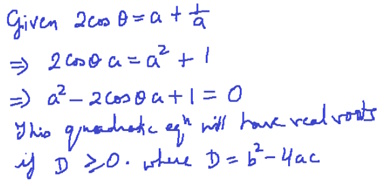 Given 2cos θ = a + 1/a
⇒ 2cos θ a = a² + 1
⇒ a² - 2cos θ a + 1 = 0
This quadratic eqⁿ will have real roots
if D ≥ 0. where D = b² - 4ac